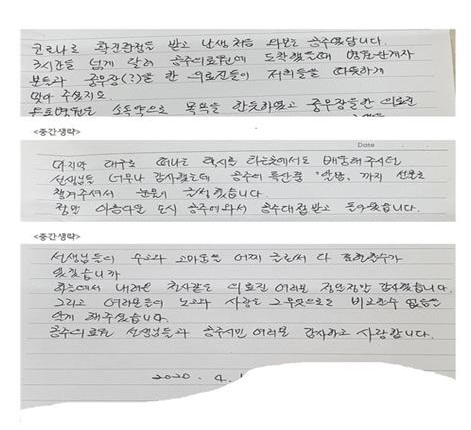 코로나로 확진판정을 받고 난생처음 와보는 공주였답니다.
3시간을 넘게 달려 공주의료원에 도착했을때 병원관계자
분들과 중무장(?)을 한 의료진들이 저희들을 따뜻하게
맞아 주셨지요
소독약으로 목욕을 한듯하였고 중무장을한 의료진
<중간생략>
Date
마지막 대구로 떠나는 택시를 타는곳에서도 배웅해주시던
선생님들 너무나 감사했는데 공주에 특산품 "알밤" 까지 선물로
챙겨주셔서 눈물이 글썽했습니다.
정말 아름다운 도시 공주에와서 공주대접받고 돌아왔습니다.
<중간생략>
선생님들의 수고와 고마움을 어찌 글로써 다 표현할수가
있겠습니까
하늘에서 내려온 천사같은 의료진 여러분 정말정말 감사했습니다.
그리고 여러분들의 노고와 사랑은 그무엇으로든 비교할수 없음을
알게 해주셨습니다.
공주의료원 선생님들과 공주시민 여러분 감사하고 사랑합니다.
2020. 4.